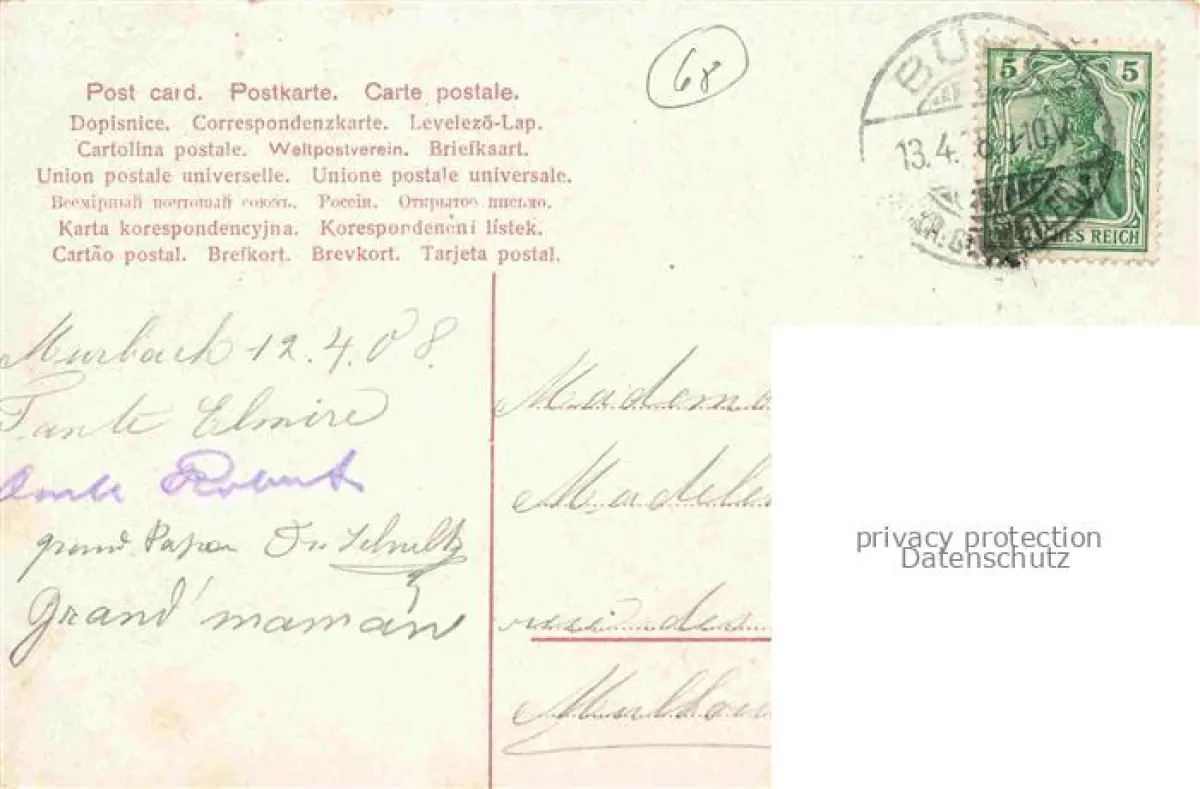 68
BÜ
13.4. 8.9-10V
5 5
ES REICH
Post card. Postkarte. Carte postale.
Dopisnice. Correspondenzkarte. Levelező-Lap.
Cartolina postale. Weltpostverein. Briefkaart.
Union postale universelle. Unione postale universale.
Всемірный почтовый союзъ. Россія. Открытое письмо.
Karta korespondencyjna. Korespondenční lístek.
Cartão postal. Brefkort. Brevkort. Tarjeta postal.
Murbach 12.4.08.
Tante Elmire
Robert
grand Papa Dr Schultz
Grand'maman
Madem
Madele
rue des
Mulhou
privacy protection
Datenschutz